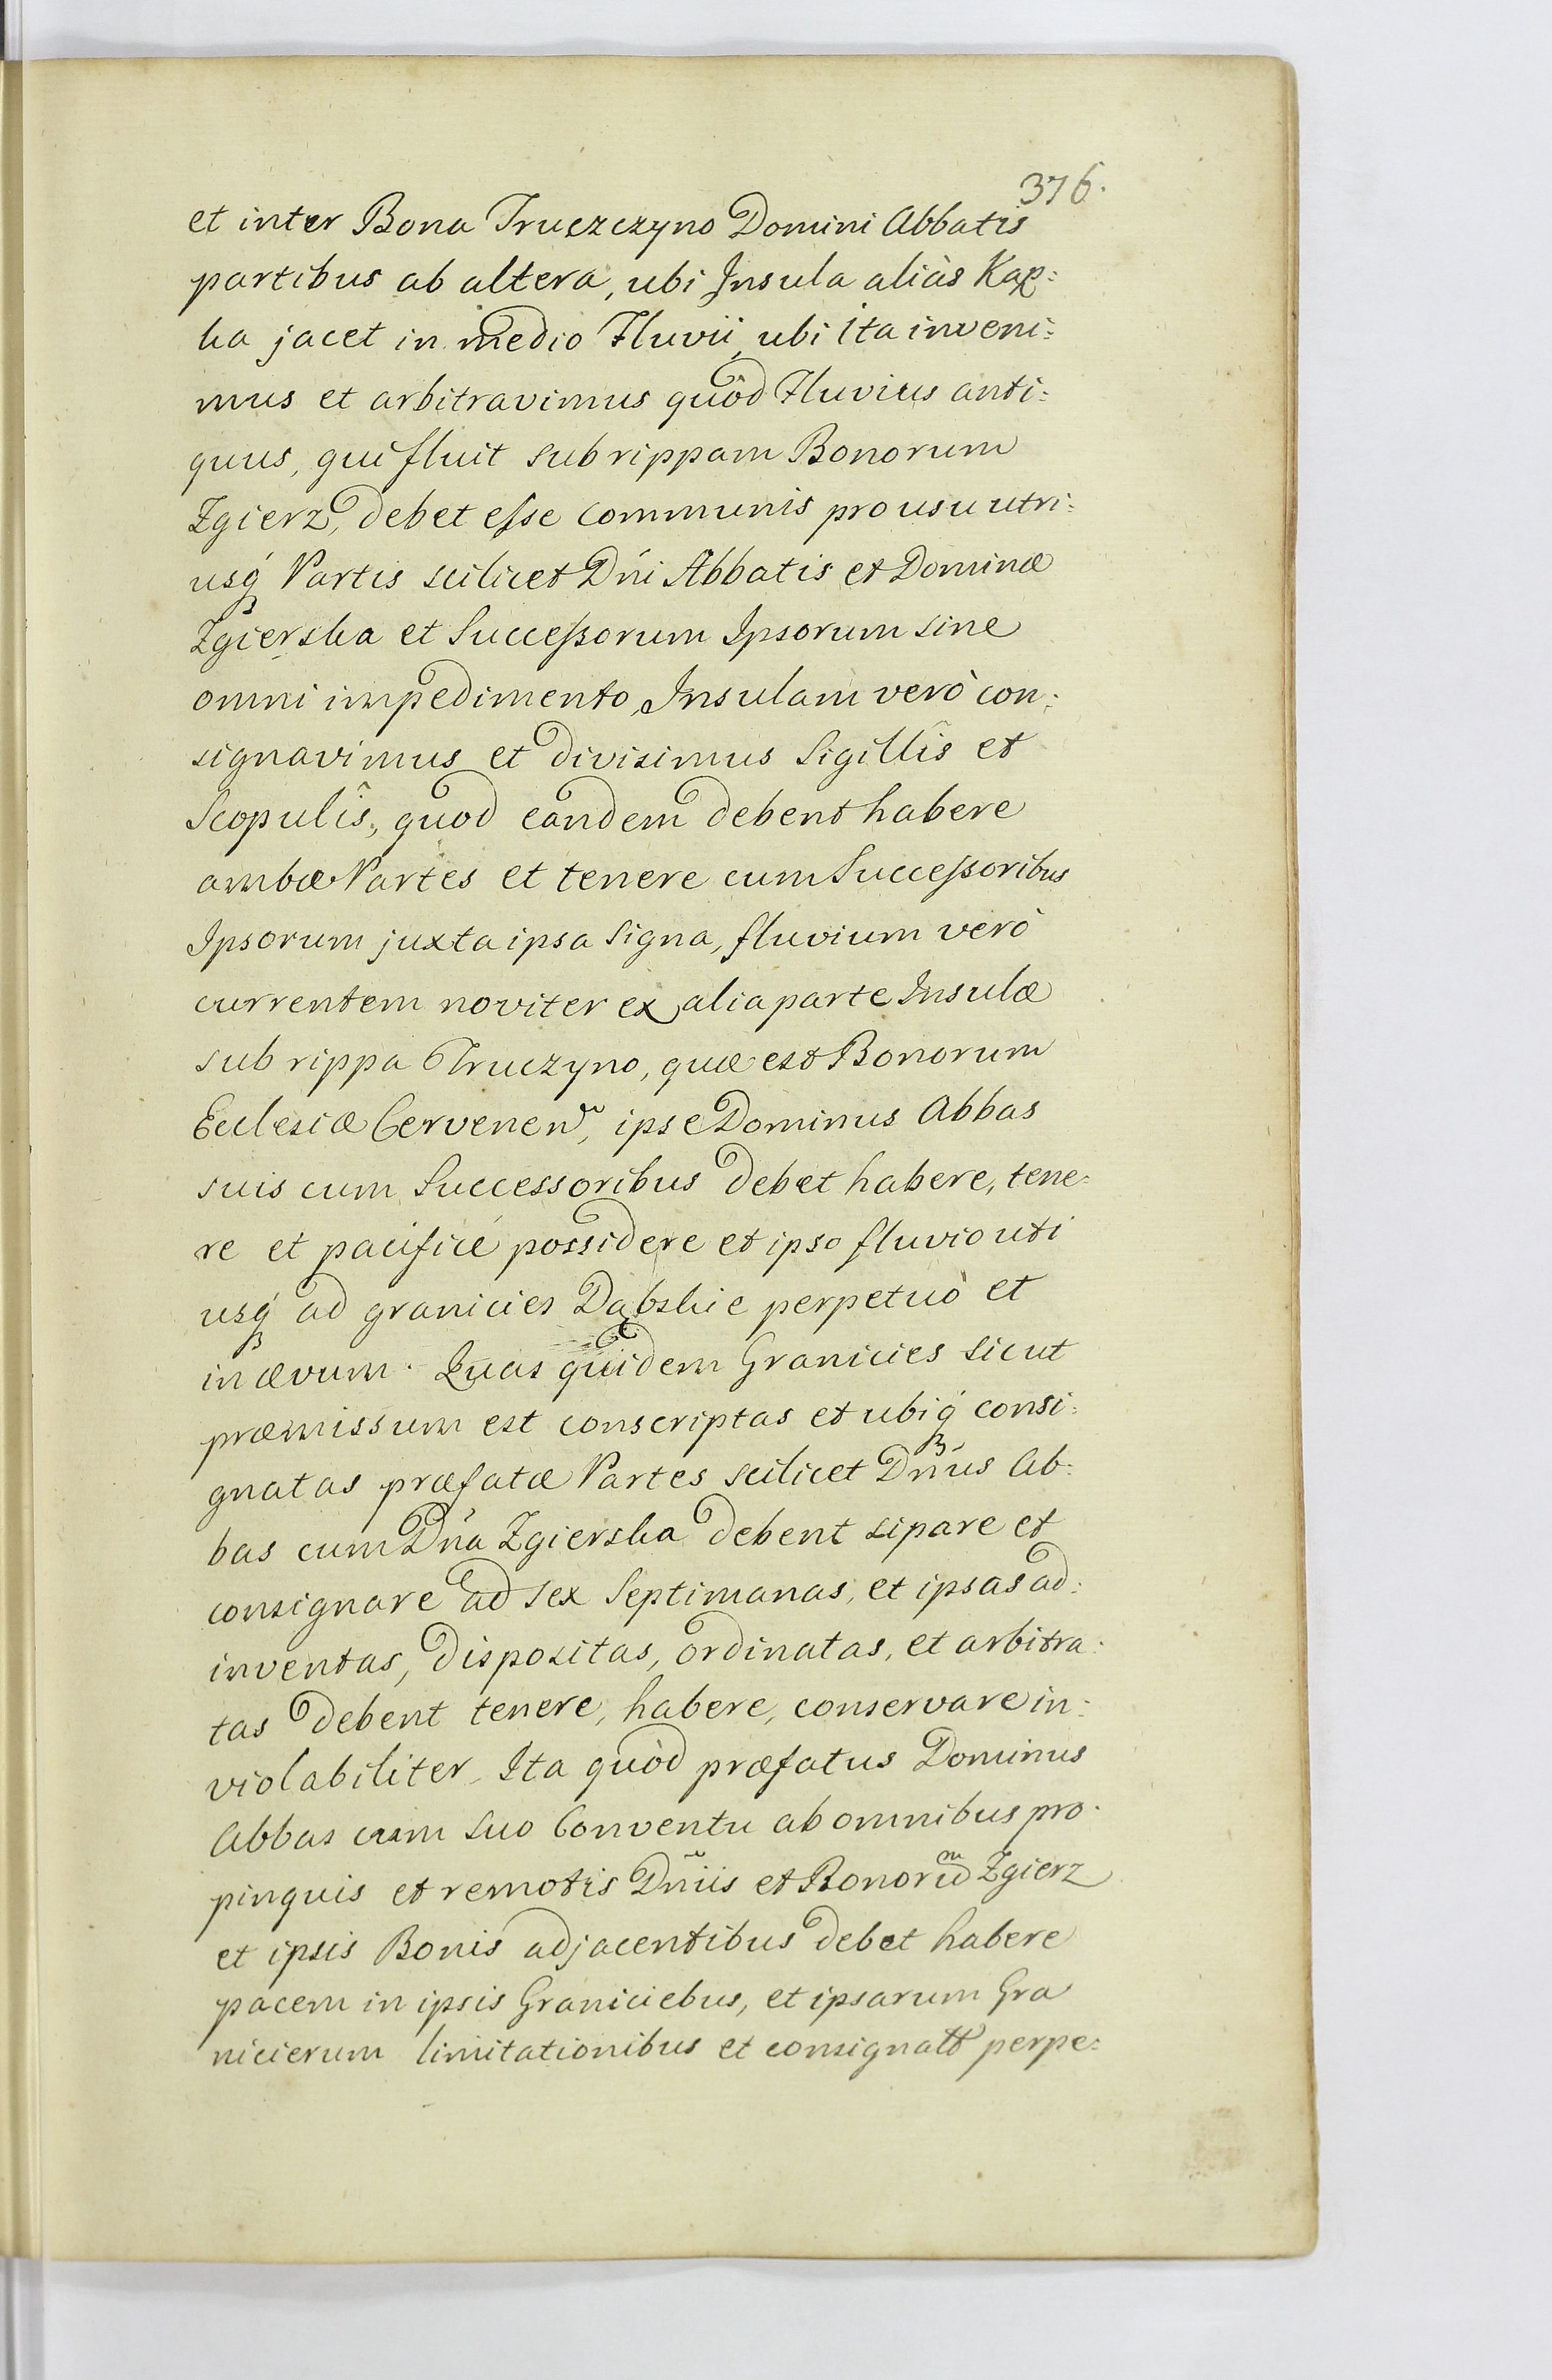 376.
et inter Bona Truszczyno Domini Abbatis
partibus ab altera, ubi Insula aliàs Kap:
ka jacet in medio Fluvii, ubi ita inveni:
mus et arbitravimus quòd Fluvius anti:
quus, qui fluit sub rippam Bonorum
Zgierz, debet eſse communis pro usu utri:
usq́ꝫ Partis scilicet Dńi Abbatis et Dominæ
Zgierska et Succeſsorum Ipsorum sine
omni impedimento, Insulam verò con:
signavimus et divisimus Sigillîs et
Scopulîs, quod eandem debent habere
ambæ Partes et tenere cum Succeſsoribus
Ipsorum juxta ipsa Signa, fluvium verò
currentem noviter ex alia parte Insulæ
sub rippa Truczyno, quæ est Bonorum
Ecclesiæ Cervenen̄, ipse Dominus Abbas
suis cum Successoribus debet habere, tene:
re et pacificé possidere et ipso fluvio uti
usq́ꝫ ad granicies Dąbskie perpetuò et
in ævum. Quas quidem Granicies sicut
præmissum est conscriptas et ubiq́ꝫ consi:
gnatas præfatæ Partes scilicet Dńus Ab:
bas cum Dńa Zgierska debent sipare et
consignare ad sex Septimanas, et ipsas ad:
inventas, dispositas, ordinatas, et arbitra:
tas debent tenere, habere, conservare in:
violabiliter. Ita quòd præfatus Dominus
Abbas cum suo Conventu ab omnibus pro:
pinquis et remotis Dn̄iis et Bonorū Zgierz
et ipsis Bonis adjacentibus debet habere
pacem in ipsis Graniciebus, et ipsarum Gra
nicierum limitationibus et consignatt perpe: